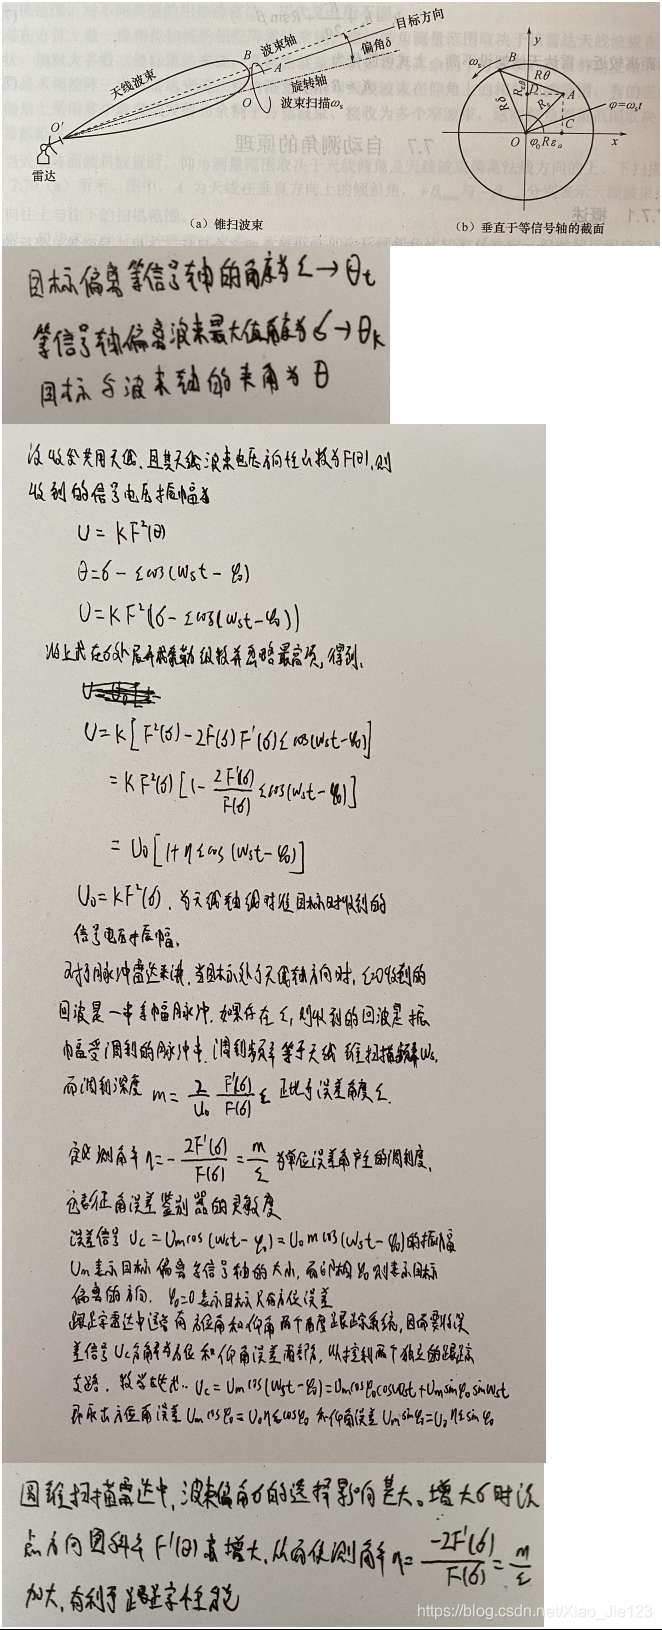 天线波束
B 波束轴
目标方向
偏角δ
A
旋转轴
O
波束扫描ωs
O'
雷达
(a) 锥扫波束
y
B
ωs
Rθ
D
A
Rδ
φ=ωst
C
O
φ0
Rε0
x
(b) 垂直于等信号轴的截面
7.7 自动测角的原理
7.7.1 概述
目标偏离等信号轴的角度为 ξ→θt
等信号轴偏离波束最大值角度为 δ→θk
目标与波束轴的夹角为 θ
设收发共用天线,且其天线波束电压方向性函数为F(θ),则
收到的信号电压振幅为
U = KF²(θ)
θ=δ-ξcos(ωst-φ0)
U=KF²(δ-ξcos(ωst-φ0))
将上式在δ处展开成泰勒级数并忽略最高项,得到.
U=K[F²(δ)-2F(δ)F'(δ)ξcos(ωst-φ0)]
=KF²(δ)[1-2F'(δ)/F(δ) ξcos(ωst-φ0)]
= U0[1+ηξcos(ωst-φ0)]
U0=KF²(δ),为天线轴线对准目标时收到的
信号电压振幅,
对于脉冲雷达来讲,当目标处于天线轴方向时,ξ=0收到的
回波是一串等幅脉冲,如果存在ξ,则收到的回波是振
幅受调制的脉冲串,调制频率等于天线锥扫描频率ωs,
而调制深度 m = 2/U0 F'(δ)/F(δ) ξ 正比于误差角度ξ.
定义测角率η=-2F'(δ)/F(δ)=m/ξ 为单位误差角产生的调制度,
它表征角误差鉴别器的灵敏度
误差信号 Uc=Umcos(ωst-φ0)=U0mcos(ωst-φ0)的振幅
Um表示目标偏离等信号轴的大小,而初相φ0则表示目标
偏离的方向. φ0=0表示目标只有方位误差
跟踪雷达中通常有方位角和仰角两个角度跟踪系统,因而要将误
差信号Uc分解为方位和仰角误差两部分,以控制两个独立的跟踪
支路. 数学表达: Uc=Umcos(ωst-φ0)=Umcosφ0cosωst+Umsinφ0sinωst
即取出方位角误差Umcosφ0=U0ηξcosφ0和仰角误差Umsinφ0=U0ηξsinφ0
圆锥扫描雷达中,波束偏角δ的选择影响甚大。增大δ时该
点方向图斜率F'(θ)亦增大,从而使测角率η=-2F'(δ)/F(δ)=m/ξ
加大,有利于跟踪性能
https://blog.csdn.net/Xiao_Jie123